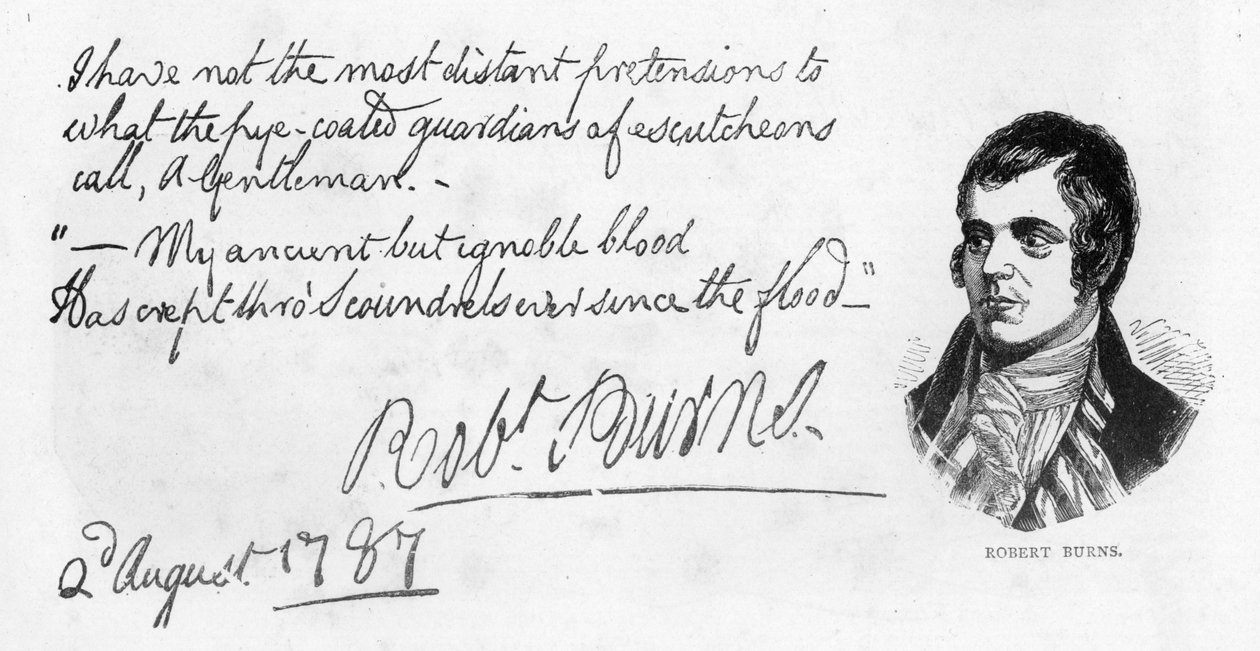 I have not the most distant pretensions to
what the pye-coated guardians of escutcheons
call, A Gentleman. -
"— My ancient but ignoble blood
Has crept thro' Scoundrels ever since the flood—"
Robt. Burns.
2d August 1787
ROBERT BURNS.